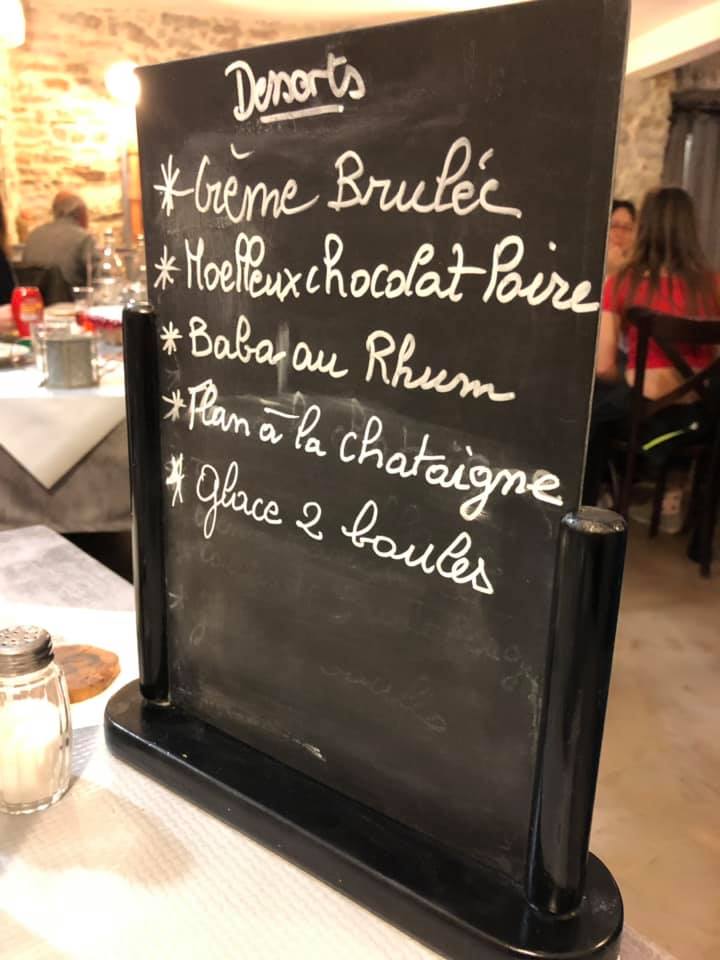 Desserts
* Crème Brulée
* Moelleux chocolat Poire
* Baba au Rhum
* Flan à la chataigne
* glace 2 boules